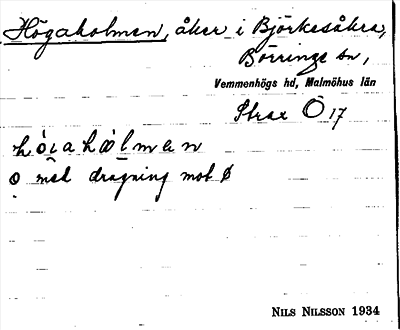 Högaholmen, åker i Björkesåkra,
Börringe sn,
Vemmenhögs hd, Malmöhus län
Strax Ö 17
o med dragning mot ø
NILS NILSSON 1934